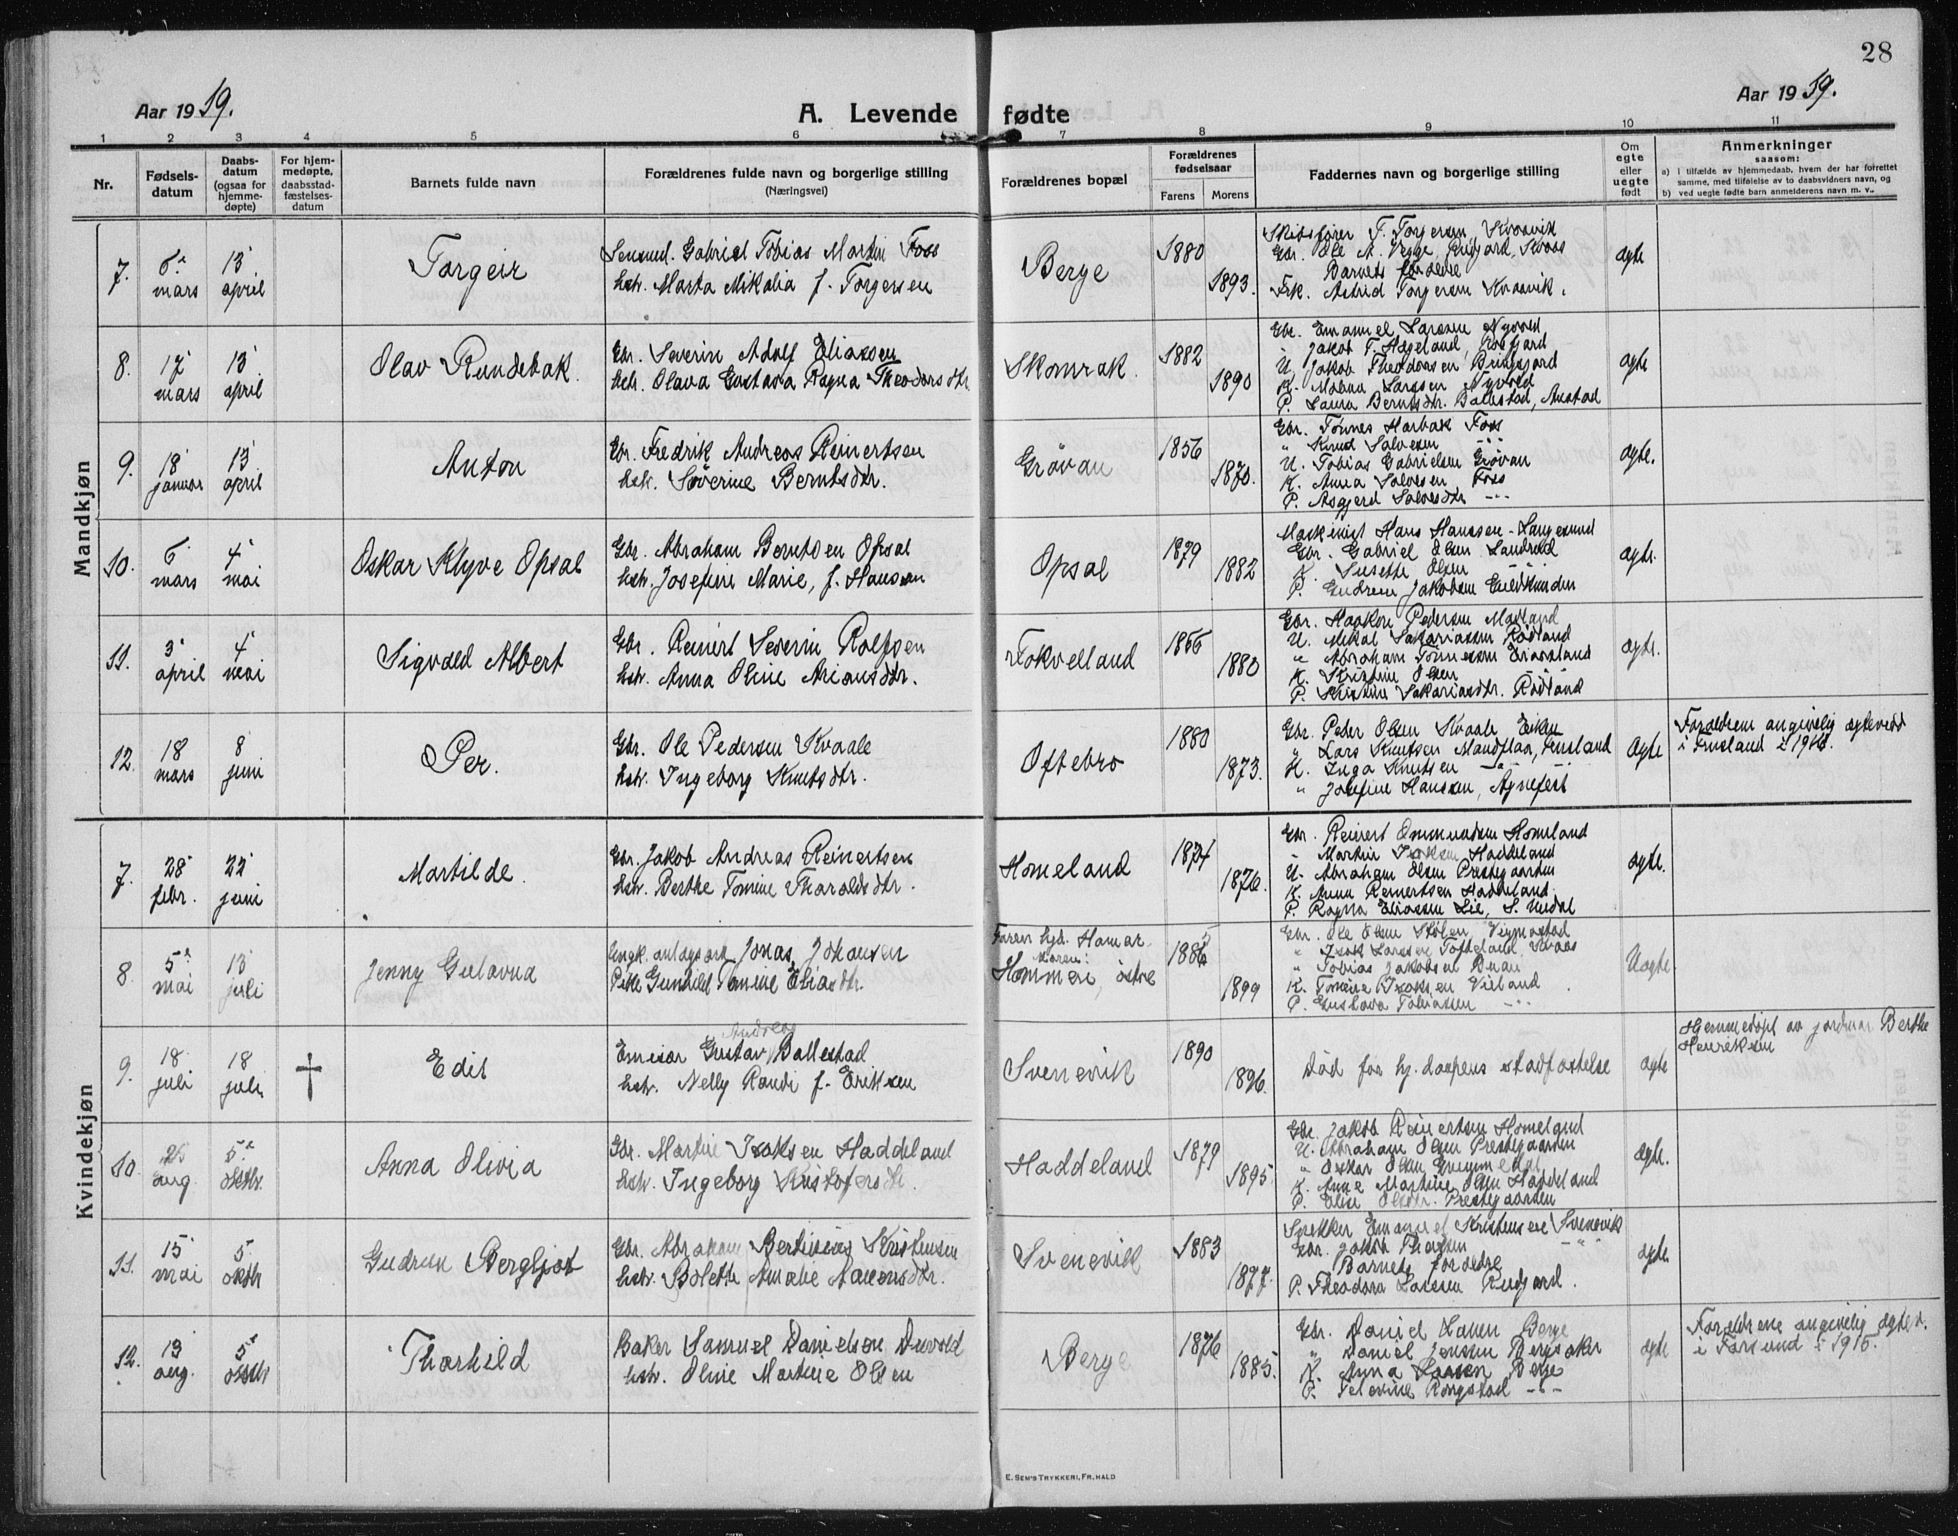 28
Aar 1919.
A. Levende fødte
Aar 1919.
1 2 3 4 5 6 7 8 9 10 11
Nr.
Fødsels-
datum
Daabs-
datum
(ogsaa for
hjemme-
døpte)
For hjem-
medøpte,
daabsstad-
fæstelses-
datum
Barnets fulde navn
Forældrenes fulde navn og borgerlige stilling
(Næringsvei)
Forældrenes bopæl
Forældrenes
fødselsaar
Farens Morens
Faddernes navn og borgerlige stilling
Om
egte
eller
uegte
født
Anmerkninger
saasom:
a) i tilfælde av hjemmedaab, hvem der har forrettet
samme, med tilføielse av to daabsvidners navn, og
b) ved uegte fødte barn anmelderens navn m. v.
Mandkjøn
7. mars 13 april
Torgeir
Gabriel Tobias Martin Foss
hstr. Marta Mikalia f. Torgersen
Berge
1880 1893.
Skibsfører F. Torgersen Kvavik
Gbr. Ole A. Vegge, Kvaas
Barnets forældre
Frk. Astrid Torgersen Kvavik.
egte
8. 17 mars 13 april
Olav Rundebak.
Gbr. Severin Adolf Eliassen
hstr. Olava Gustava Ragna Theodorsdtr
Skomrak.
1882 1890
Gbr. Emanuel Larsen Nyvold
" Jakob F. Hageland, Rosfjord
U. Jakob Theodorsen
K. Larssen Nyvold
P. Laura Berntsdtr. Ballestad, Austad
egte
9. 18 januar 13 april
Anton
Gbr. Fredrik Andreas Reinertsen
hstr. Søverine Berntsdtr.
Grøvan
1856 1870.
Gbr. Tønnes Harbak Foss
" Knud Salvesen -"-
U. Tobias Gabrielsen Grøvan
K. Anna Salvesen Foss
P. Asgjerd Salvesdtr -"-
egte.
10. 6 mars 4 mai
Oskar Klyve Opsal
Gbr. Abraham Berntsen Opsal
hstr. Josefine Marie, f. Hansen
Opsal
1879 1882
Maskinist Hans Hanssen - Langesund
Gbr. Gabriel Olsen Landrud
K. Susette Olsen -"-
P. Gudrun Jakobsen
egte.
11. 3 april 4 mai
Sigvald Albert
Gbr. Reinert Severin Rolfsen
hstr. Anna Oline Ariansdtr.
Fokvelland
1866 1880
Gbr. Haakon Pedersen Møvland
U. Mikal Sakariassen Rødland
" Abraham Tønnessen
K. Kristine Olsen -"-
P. Kristine Sakariasdtr. Rødland
egte.
12. 18 mars 8 juni
Per.
Gbr. Ole Pedersen Kvaale
hstr. Ingeborg Knutsdtr.
Oftebro
1880 1873.
Gbr. Peder Olsen Kvaale Eiken
" Lars Knutsen Mandflaa, Finsland
H. Inga Knutsen -"-
" Josefine Hanssen, Agnefest
egte
Forældrene angivelig egteviet
i Finsland i 1910.
Kvindekjøn
7. 28 febr. 22 juni
Martilde.
Gbr. Jakob Andreas Reinertsen
hstr. Berthe Tomine Tharaldsdtr.
Homeland
1874 1876.
Gbr. Reinert Ommundsen Homeland
" Martin Isaksen Haddeland
U. Abraham Olsen Prestegaarden
K. Anna Reinertsen Haddeland.
P. Ragna Eliassen Lie, S. Undal
egte.
8. 5 mai 13 juli
Jenny Gustava
Ungk. anlægsarb. Jonas Johansen
Pike Gunhild Tomine Eliasdtr.
Faren hjd. Hamar
Moren:
Hommen, østre
1886 1899
Gbr. Ole Olsen Stølen, Vigmostad
" Isak Larssen Tofteland, Kvaas
" Tobias Jakobsen
K. Tomine Isaksen Vieland
P. Gustava Tobiassen -"-
Uegte.
9. 18 juli 18 juli †
Edit
Emisær Gustav Andreas Ballestad
hstr. Nelly Randi f. Eriksen
Svenevik
1890 1896.
Død før hj. daapens stadfæstelse
egte
Hjemmedøpt av jordmor Berthe
Henriksen
10. aug. 5 oktbr.
Anna Olivia
Gbr. Martin Isaksen Haddeland
hstr. Ingeborg Kristofersdtr.
Haddeland
1879 1895.
Gbr. Jakob Reinertsen Homeland
U. Abraham Olsen Prestegaarden
" Oskar Olsen
K. Anne Martine Olsen Haddeland
P. Elise Olsdtr. Prestegaarden
egte.
11. 15 mai 5 oktbr
Gudrun Bergljot
Gbr. Abraham Bertinius Kristensen
hstr. Bolette Amalie Aanensdtr.
Svenevik
1883 1877.
Snekker Emanuel Kristensen Svenevik
Gbr. Jakob Thorsen -"-
Barnets forældre
P. Theodora Larssen Rødfjord.
egte.
12. 13 aug. 5 oktbr
Thorhild
Baker Samuel Danielsen Duvold
hstr. Oline Martine Olsen
Berge
1876 1885.
Gbr. Daniel Larsen Berge
" Daniel Jensen Bergsaker
K. Anna Larsen Berge
P. Tehodine Ringstad -"-
egte
Forældrene angivelig egtev.
i Farsund i 1915.
E. SEM'S TRYKKERI, FR. HALD